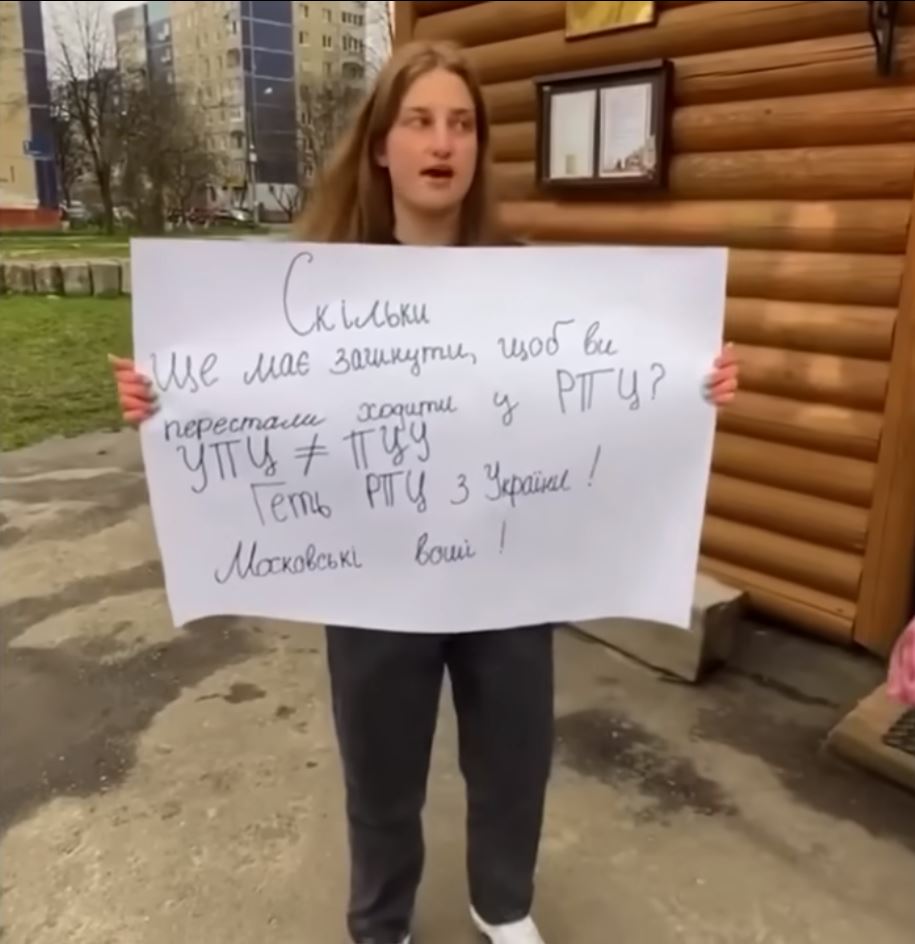 Скільки
ще має загинути, щоб ви
перестали ходити у РПЦ?
УПЦ ≠ ПЦУ
Геть РПЦ з України!
Московські воші!